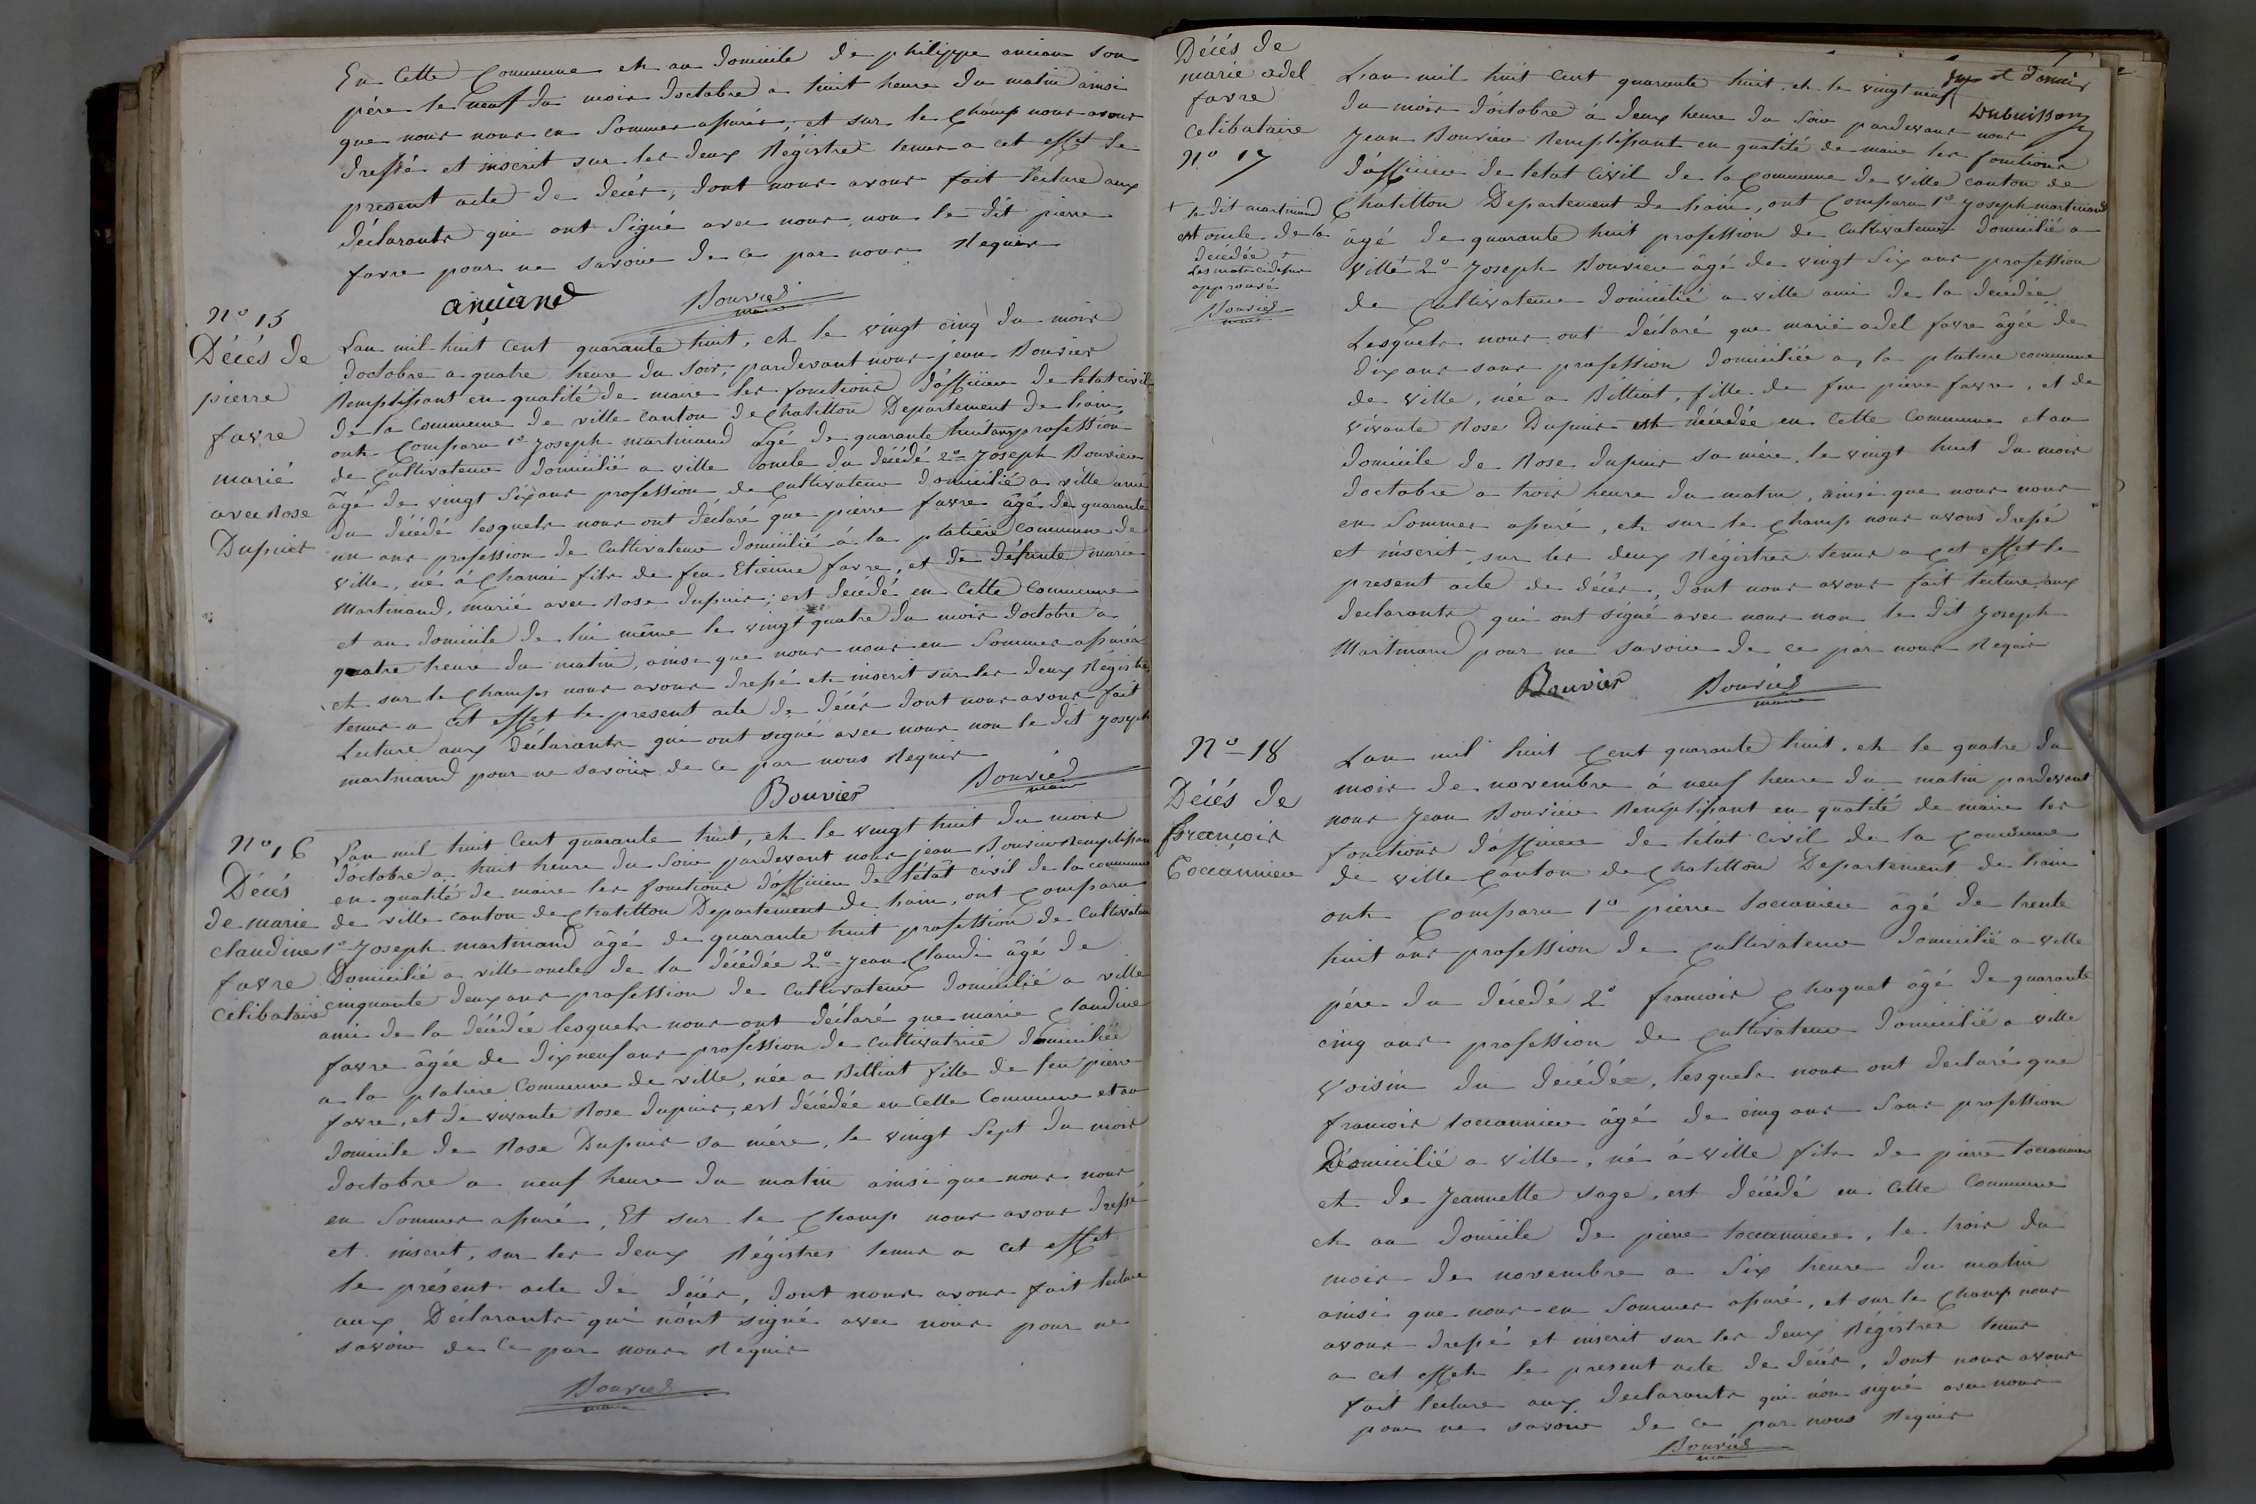 En Cette Commune et au domicile de philippe anciand son
père le neuf du mois doctobre a huit heure du matin ainsi
que nous nous en Sommes assurés, et sur le Champ nous avons
dressé et inscrit sur les deux Régistre tenus a cet effet le
present acte de décés, dont nous avons fait lecture aux
déclarants qui ont Signé avec nous non le dit pierre
favre pour ne savoir de ce par nous Requis
anciand Bouvier
maire
N° 15
Décés de
pierre
favre
marié
avec Rose
Dupuis
Lan mil huit Cent quarante huit, et le vingt cinq du mois
doctobre a quatre heure du Soir, pardevant nous jean Bouvier
Remplissant en qualité de maire les fonctions d'officier de letat civil
de la Commune de ville canton de Chatillon Departement de lain,
ont Comparu 1° Joseph martinand âgé de quarante huit ans profession
de Cultivateur domicilié a ville oncle du décédé 2° Joseph Bouvier
âgé de vingt Six ans profession de Cultivateur domicilié a ville ami
du décédé lesquels nous ont déclaré que pierre favre âgé de quarante
un ans profession de Cultivateur domicilié á la platiere commune de
ville, né á Chanai fils de feu Etienne favre, et de défunte marie
Martinand, marié avec Rose dupuis; est décédé en Cette Commune
et au domicile de lui même le vingt quatre du mois doctobre a
quatre heure du matin, ainsi que nous nous en Sommes assurés
et sur le Champs nous avons dressé et inscrit sur les deux Régistre
tenus a Cet effet le present acte de décés dont nous avons fait
Lecture aux déclarants qui ont signé avec nous non le dit Joseph
martinand pour ne savoir de ce par nous Requis
Bouvier Bouvier
maire
N° 16
Décés
de marie
claudine
favre
célibataire
Lan mil huit Cent quarante huit, et le vingt huit du mois
d'octobre a huit heure du Soir pardevant nous jean Bouvier Remplissant
en qualité de maire les fonctions d'officier de l'état civil de la commune
de ville canton de Chatillon Departement de lain, ont Comparu
1° Joseph martinand âgé de quarante huit profession de Cultivateur
Domicilié a ville oncle de la décédée 2° jean Claude âgé de
cinquante deux ans profession de Cultivateur domicilié a ville
ami de la décédée lesquels nous ont déclaré que marie Claudine
favre âgée de dix neuf ans profession de Cultivatrice domiciliée
a la platiere Commune de ville, née a Billiat fille de feu pierre
favre, et de vivante Rose dupuis; est décédée en Cette Commune et au
domicile de Rose Dupuis sa mére, le vingt Sept du mois
doctobre a neuf heure du matin ainsi que nous nous
en Sommes assuré, Et sur le Champ nous avons dressé
et inscrit, sur les deux Régistres tenus a cet effet
le présent acte de décés, dont nous avons fait lecture
aux Déclarants qui n'ont signé avec nous pour ne
savoir de Ce par nous Requis
Bouvier
maire
Dubuisson
Décés de
marie adel
favre
celibataire
N° 17
+ le dit martinand
est oncle de la
décédée +
approuvé
Bouvier
maire
Lan mil huit Cent quarante huit, et le vingt neuf
du mois d'octobre á deux heure du Soir pardevant nous
Jean Bouvier Remplissant en qualité de maire les fonctions
d'officier de letat Civil de la Commune de ville canton de
Chatillon Departement de lain, ont Comparu 1° Joseph martinand
âgé de quarante huit profession de Cultivateur domicilié a
ville + 2° Joseph Bouvier âgé de vingt Six ans profession
de Cultivateur domicilié a ville ami de la décédée
Lesquels nous ont déclaré que marie adel favre âgée de
dix ans sans profession domiciliée a, la platiere commune
de ville, née a Billiat, fille de feu pierre favre, et de
vivante Rose Dupuis est décédée en Cette Commune et au
domicile de Rose dupuis sa mére, le vingt huit du mois
doctobre a trois heure du matin, ainsi que nous nous
en Sommes assuré, et sur le Champ nous avons dressé
et inscrit, sur les deux Régistres tenus a Cet effet le
present acte de décés, dont nous avons fait lecture aux
declarants qui ont signé avec nous non le dit Joseph
Martinand pour ne savoir de ce par nous Requis
Bouvier Bouvier
maire
N° 18
Décés de
françois
Toccannier
Lan mil huit Cent quarante huit, et le quatre du
mois de novembre á neuf heure du matin pardevant
nous Jean Bouvier Remplissant en qualité de maire les
fonctions d'officier de l'état civil de la Commune
de ville Canton de Chatillon Departement de lain
ont Comparu 1° pierre toccanier âgé de trente
huit ans profession de Cultivateur domicilié a ville
pére du décedé 2° francois Choquet âgé de quarante
cinq ans profession de Cultivateur domicilié a ville
voisin du decédée, lesquels nous ont declaré que
francois toccannier âgé de cinq ans Sans profession
Domicilié a ville, né á ville fils de pierre toccannier
et de Jeannette sage, est décédé en Cette Commune
et au domicile de pierre toccannier, le trois du
mois de novembre a Six heure du matin
ainsi que nous en Sommes assuré, et sur le Champ nous
avons dressé et inscrit sur les deux Régistres tenus
a cet effet le present acte de décés, dont nous avons
fait lecture aux declarants qui n'on signé avec nous
pour ne savoir de ce par nous Requis
Bouvier
maire